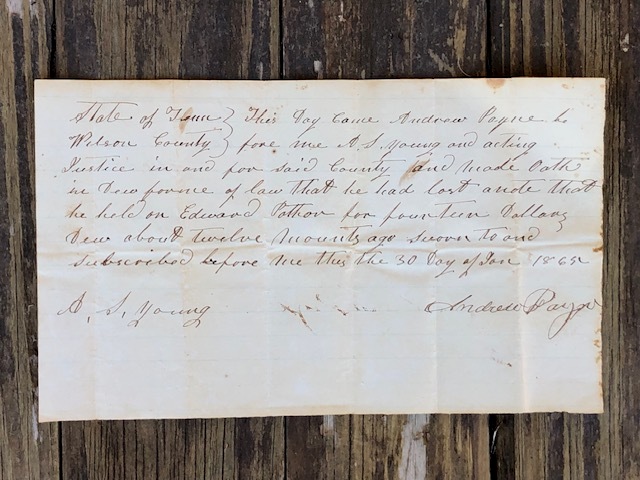 State of Tenn } This Day Came Andrew Payne be
Wilson County } fore me A. S. Young and acting
Justice in and for said County and made Oath
in Dew forme of law that he had lost a note that
he held on Edward for fourteen Dollars
Dew about twelve mounts ago sworn to and
subscribed before me this the 30 Day of Jan
A, S, Young Andrew Payne